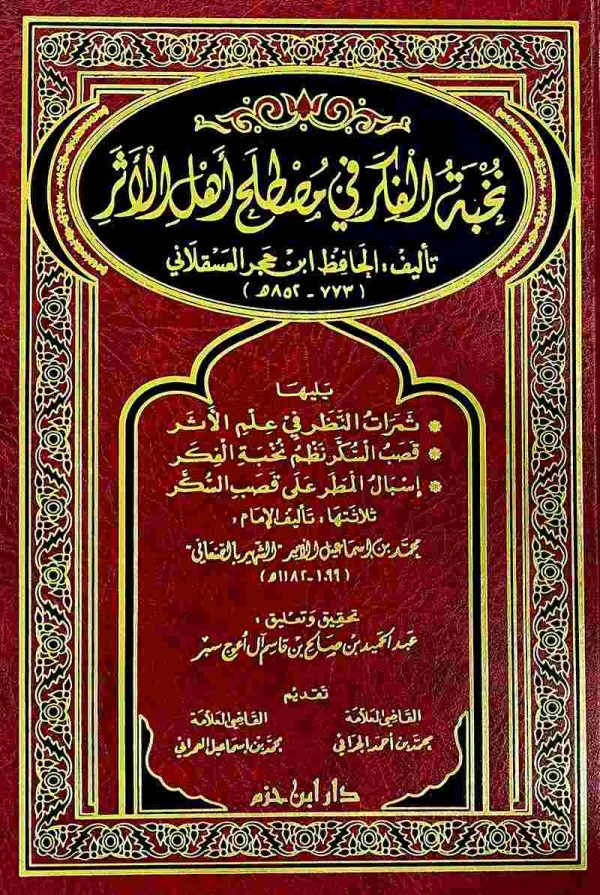 نُخْبَةُ الْفِكَرِ فِي مُصْطَلَحِ أَهْلِ الْأَثَرِ
تأليف: الحَافِظ ابن حَجَر العَسْقَلاني
(٧٧٣ - ٨٥٢هـ)
يَليهَا
* ثَمَرَاتُ النَّظَرِ فِي عِلْمِ الأَثَرِ
* قَصَبُ السُّكَّرِ نَظْمُ نُخْبَةِ الفِكَرِ
* إسْبَالُ المَطَرِ عَلى قَصَبِ السُّكَّرِ
ثلاثتها، تأليف الإمام:
محمد بن إسماعيل الأمير "الشهير بالصنعاني"
(١٠٩٩-١١٨٢هـ)
تحقيق وتعليق:
عبد الحميد بن صالح بن قاسم آل أعوج سبر
تقديم
القاضي العلامة القاضي العلامة
محمد بن أحمد الجرافي محمد بن إسماعيل العمراني
دار ابن حزم